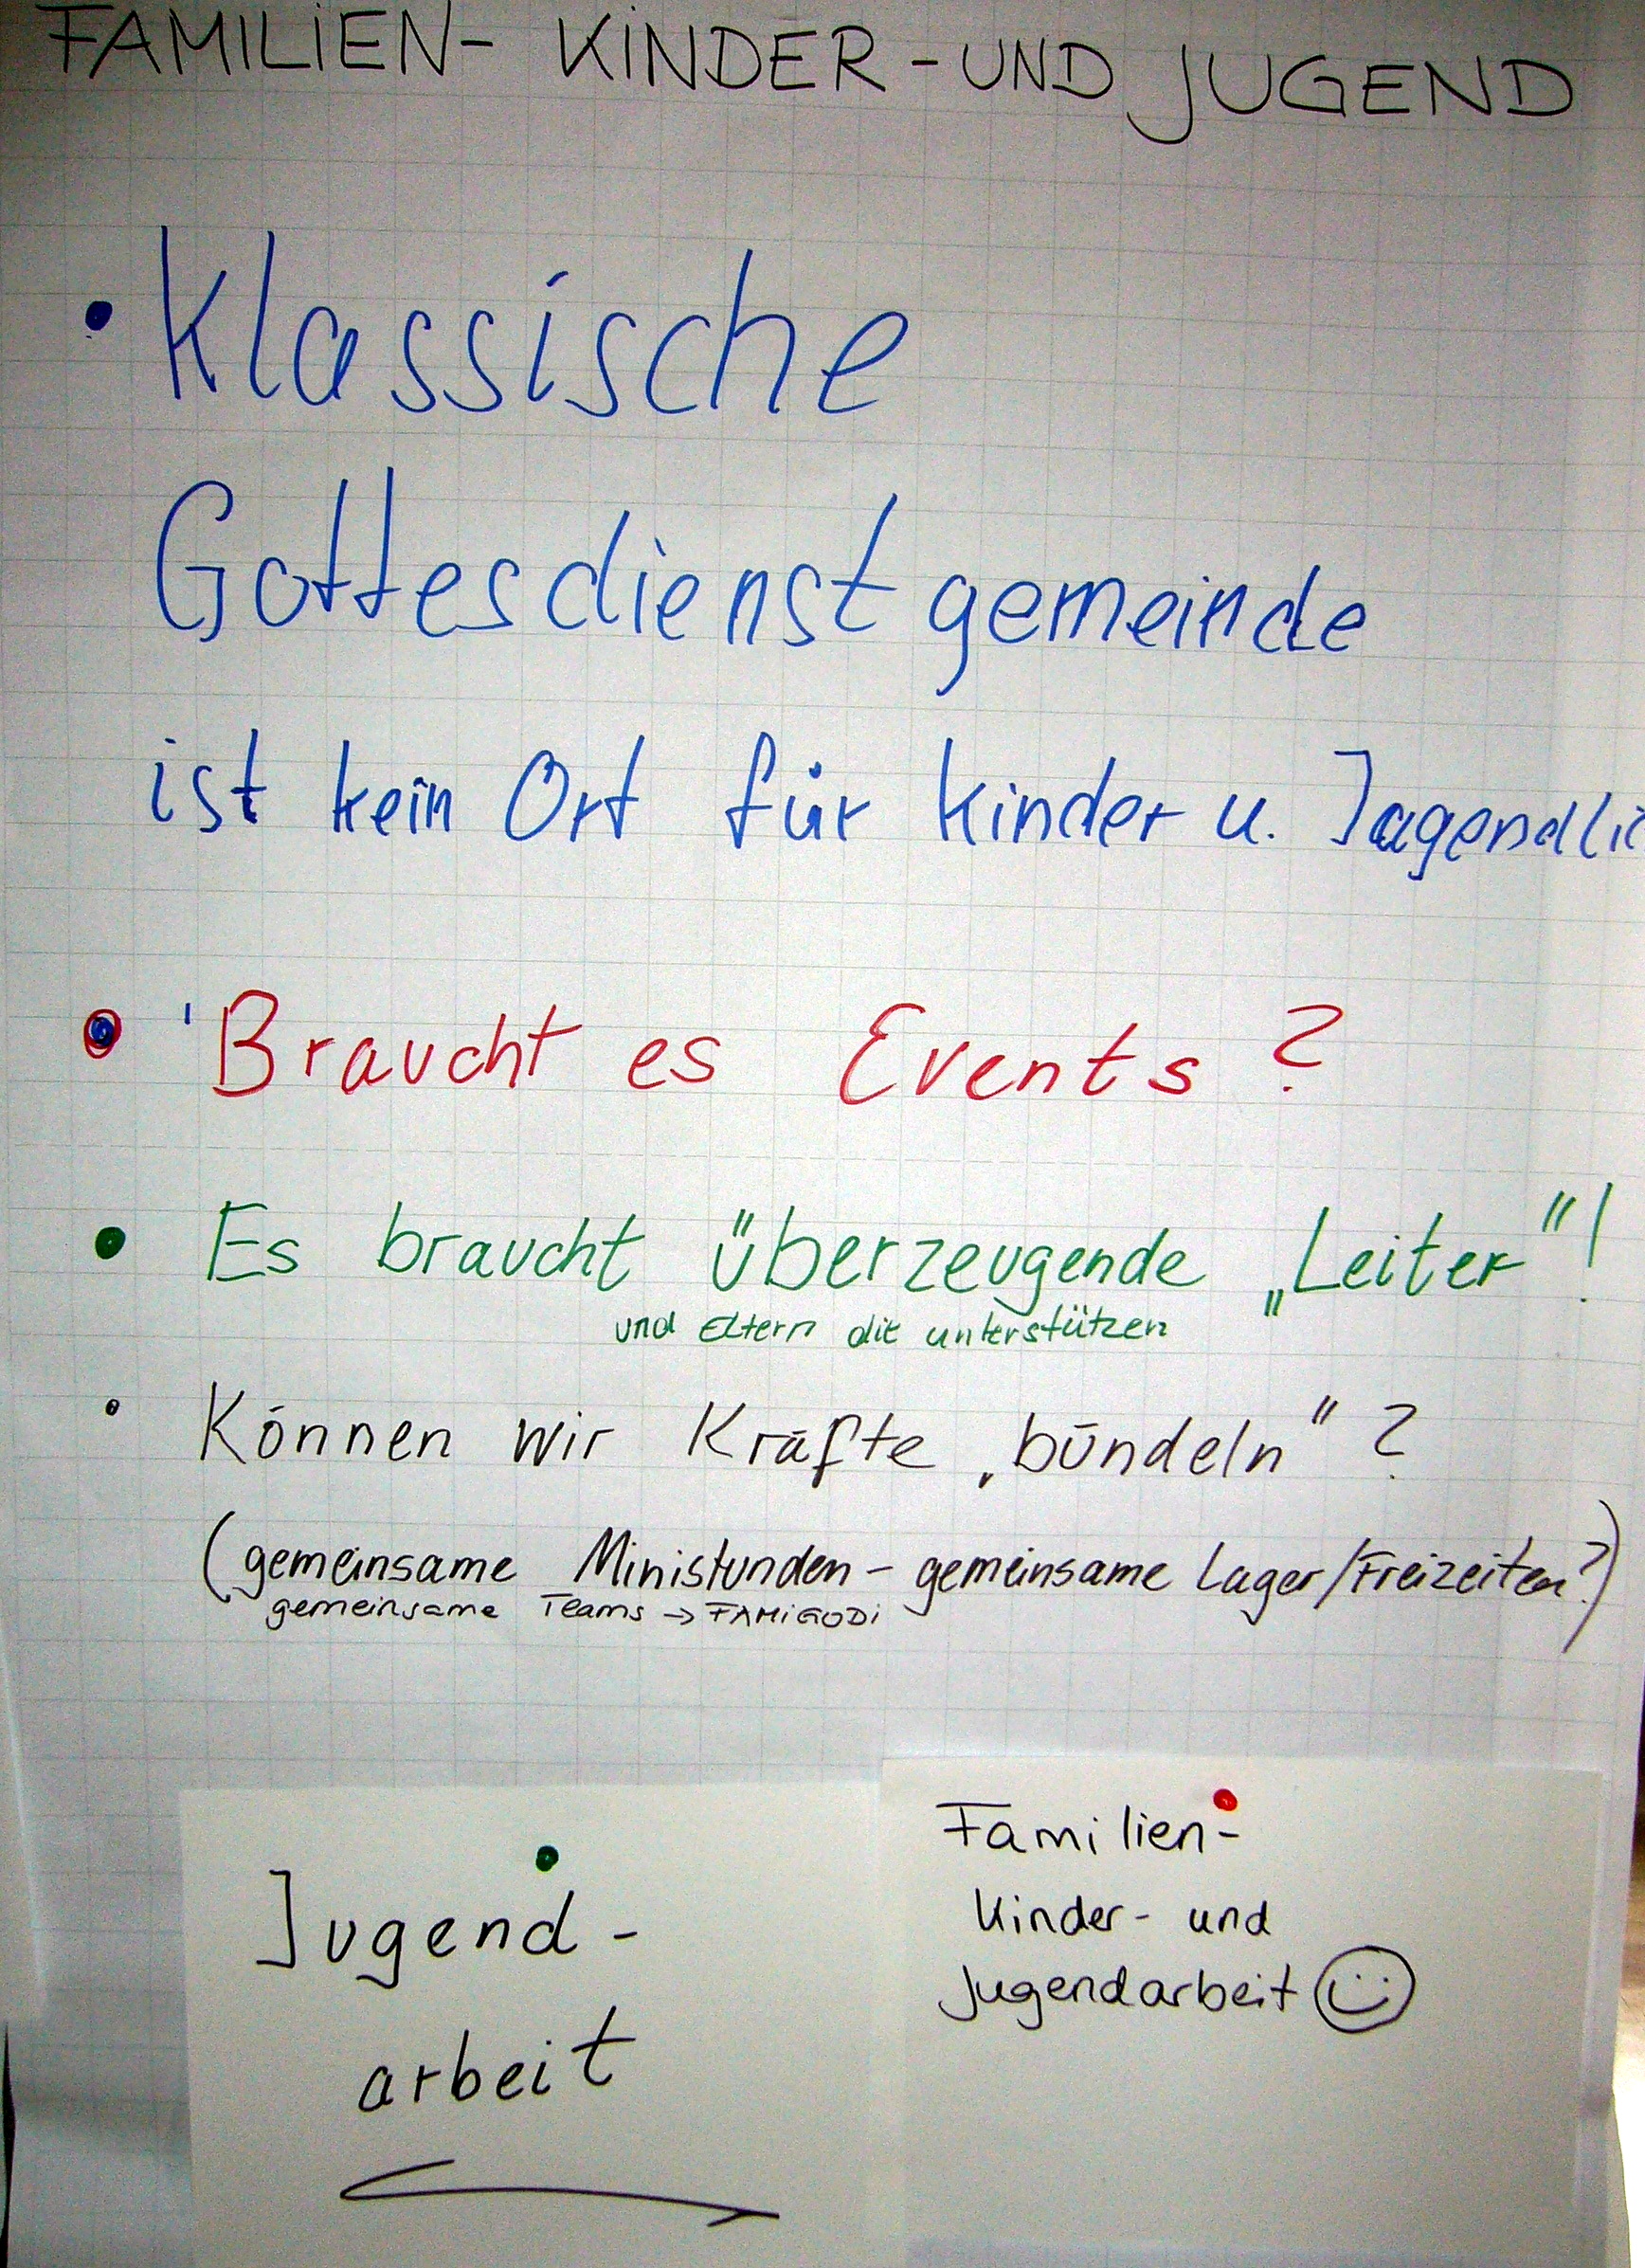 FAMILIEN- KINDER-UND JUGEND
• Klassische
Gottesdienstgemeinde
ist kein Ort für Kinder u. Jugendlic
• Braucht es Events?
• Es braucht überzeugende „Leiter"!
und Eltern die unterstützen
• Können wir Kräfte „bündeln"?
(gemeinsame Ministunden - gemeinsame Lager/Freizeiten?)
gemeinsame Teams → FAMIGODI
Jugend-
arbeit
Familien-
Kinder- und
Jugendarbeit ☺